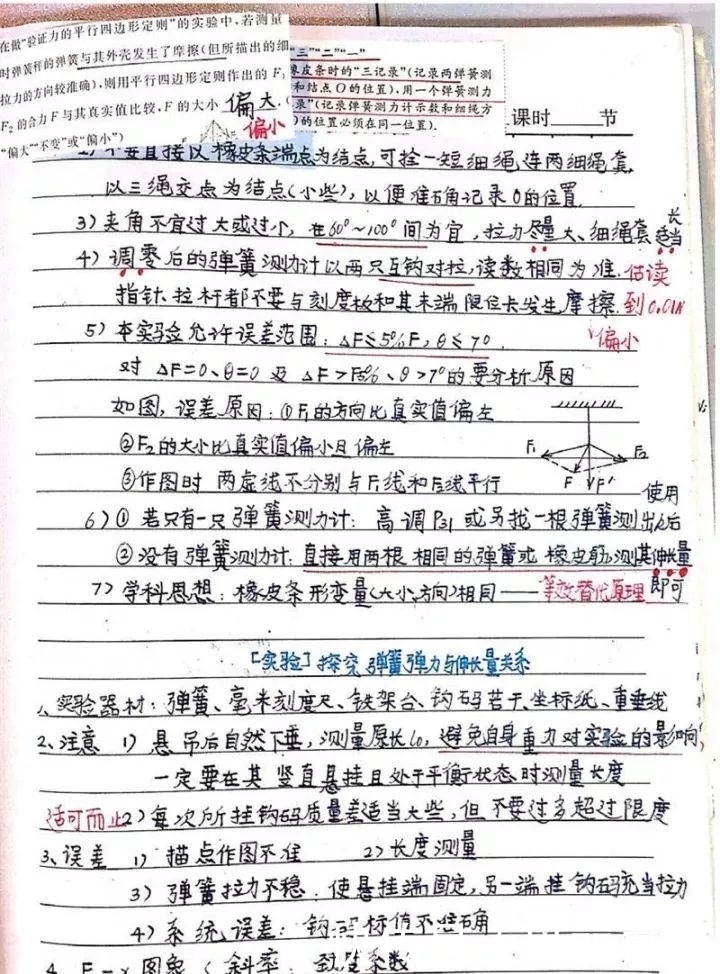 在做“验证力的平行四边形定则”的实验中,若测量
时弹簧秤的弹簧与其外壳发生了摩擦(但所描出的细
拉力的方向较准确),则用平行四边形定则作出的F₁
F₂的合力F与其真实值比较,F的大小 偏大.(
“偏大”“不变”或“偏小”) 偏小
“三”“二”“一”
橡皮条时的“三记录”(记录两弹簧测
和结点O的位置),用一个弹簧测力
录”(记录弹簧测力计示数和细绳方
)的位置必须在同一位置).
课时 节
不要直接以橡皮条端点为结点,可拴一短细绳连两细绳套,
以三绳交点为结点(小些),以便准确记录O的位置
3) 夹角不宜过大或过小,在60°~100°间为宜,拉力尽量大、细绳套适当长
4) 调零后的弹簧测力计以两只互钩对拉,读数相同为准.估读
指针、拉杆都不要与刻度板和其末端限位卡发生摩擦.到0.01N
偏小
5) 本实验允许误差范围:△F≤5%F,θ≤7°.
对△F=0、θ=0及△F>F5%、θ>7°的要分析原因
如图,误差原因:①F₁的方向比真实值偏左
②F₂的大小比真实值偏小且偏左
③作图时两虚线不分别与F₁线和F₂线平行
F₁ F₂ F F′
6) ① 若只有一只弹簧测力计:高调P31或另找一根弹簧测出后使用
② 没有弹簧测力计:直接用两根相同的弹簧或橡皮筋,测其伸长量即可
7) 学科思想:橡皮条形变量(大小、方向)相同——等效替代原理
[实验]探究弹簧弹力与伸长量关系
1、实验器材:弹簧、毫米刻度尺、铁架台、钩码若干、坐标纸、重垂线
2、注意 1) 悬吊后自然下垂,测量原长l₀,避免自身重力对实验的影响,
一定要在其竖直悬挂且处于平衡状态时测量长度
适可而止 2) 每次所挂钩码质量差适当大些,但不要过多超过限度
3、误差 1) 描点作图不准 2) 长度测量
3) 弹簧拉力不稳:使悬挂端固定,另一端挂钩码充当拉力
4) 系统误差:钩码标值不准确
4、F-x图象(斜率:劲度系数